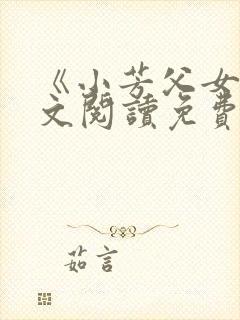 《小芳父女
文閱讀免費
茹言